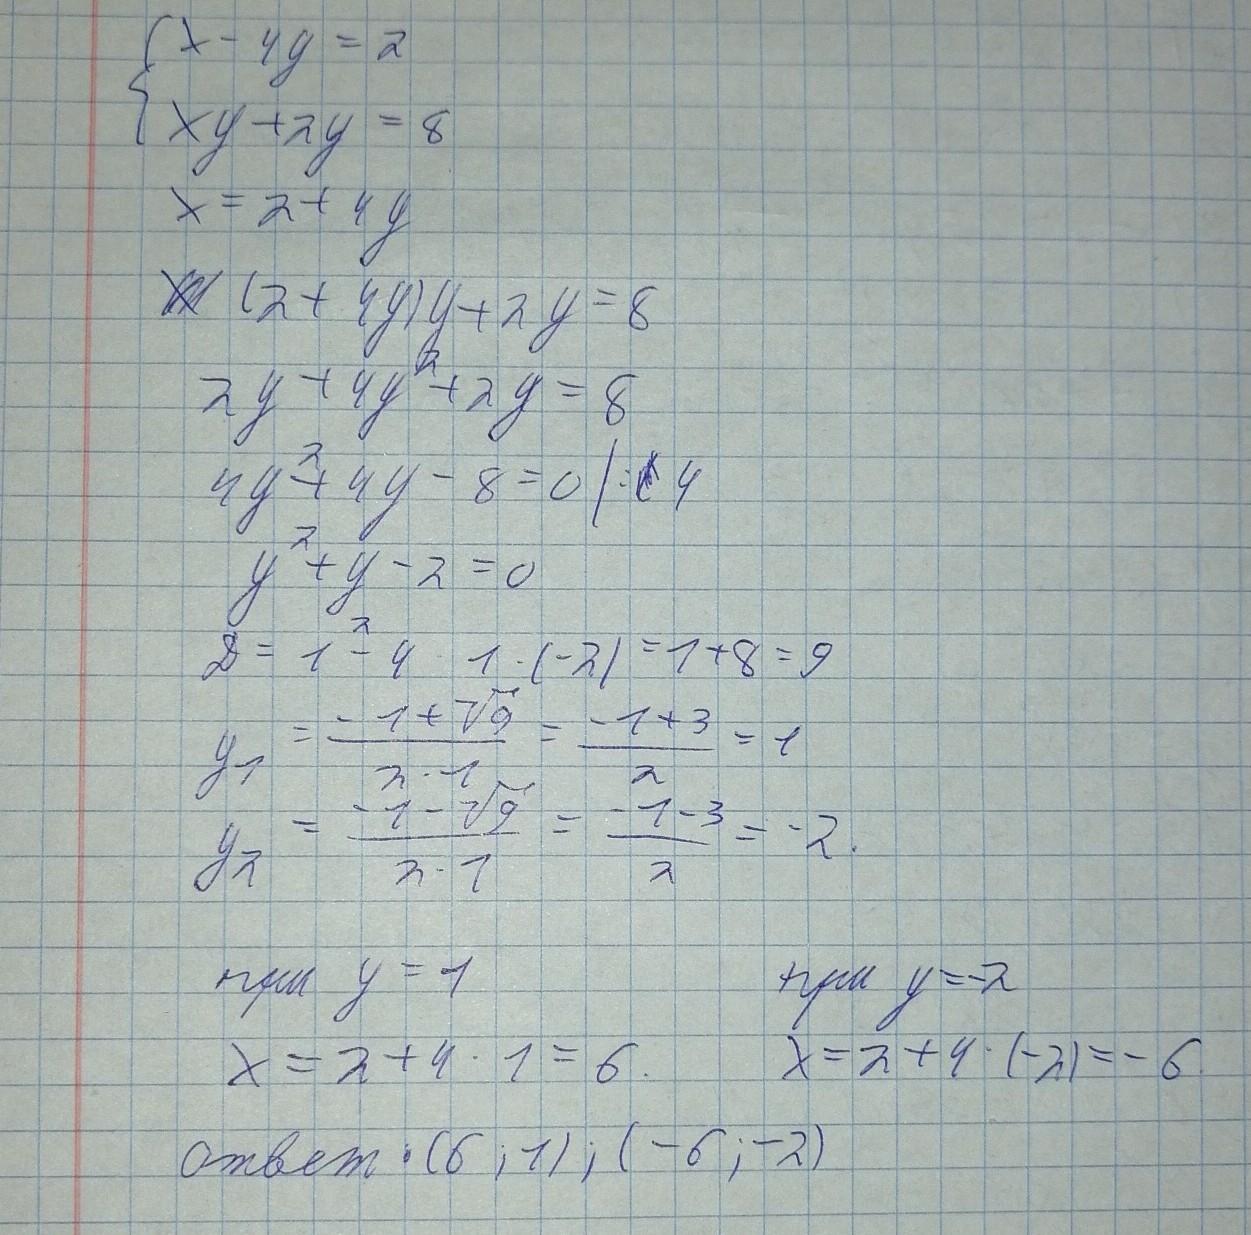 { x - 4y = 2
xy + 2y = 8
x = 2 + 4y
(2 + 4y)y + 2y = 8
2y + 4y² + 2y = 8
4y² + 4y - 8 = 0 | : 4
y² + y - 2 = 0
D = 1² - 4 · 1 · (-2) = 1 + 8 = 9
y₁ = (-1 + √9)/(2 · 1) = (-1 + 3)/2 = 1
y₂ = (-1 - √9)/(2 · 1) = (-1 - 3)/2 = -2.
при y = 1 при y = -2
x = 2 + 4 · 1 = 6. x = 2 + 4 · (-2) = -6.
ответ: (6 ; 1) ; (-6 ; -2)